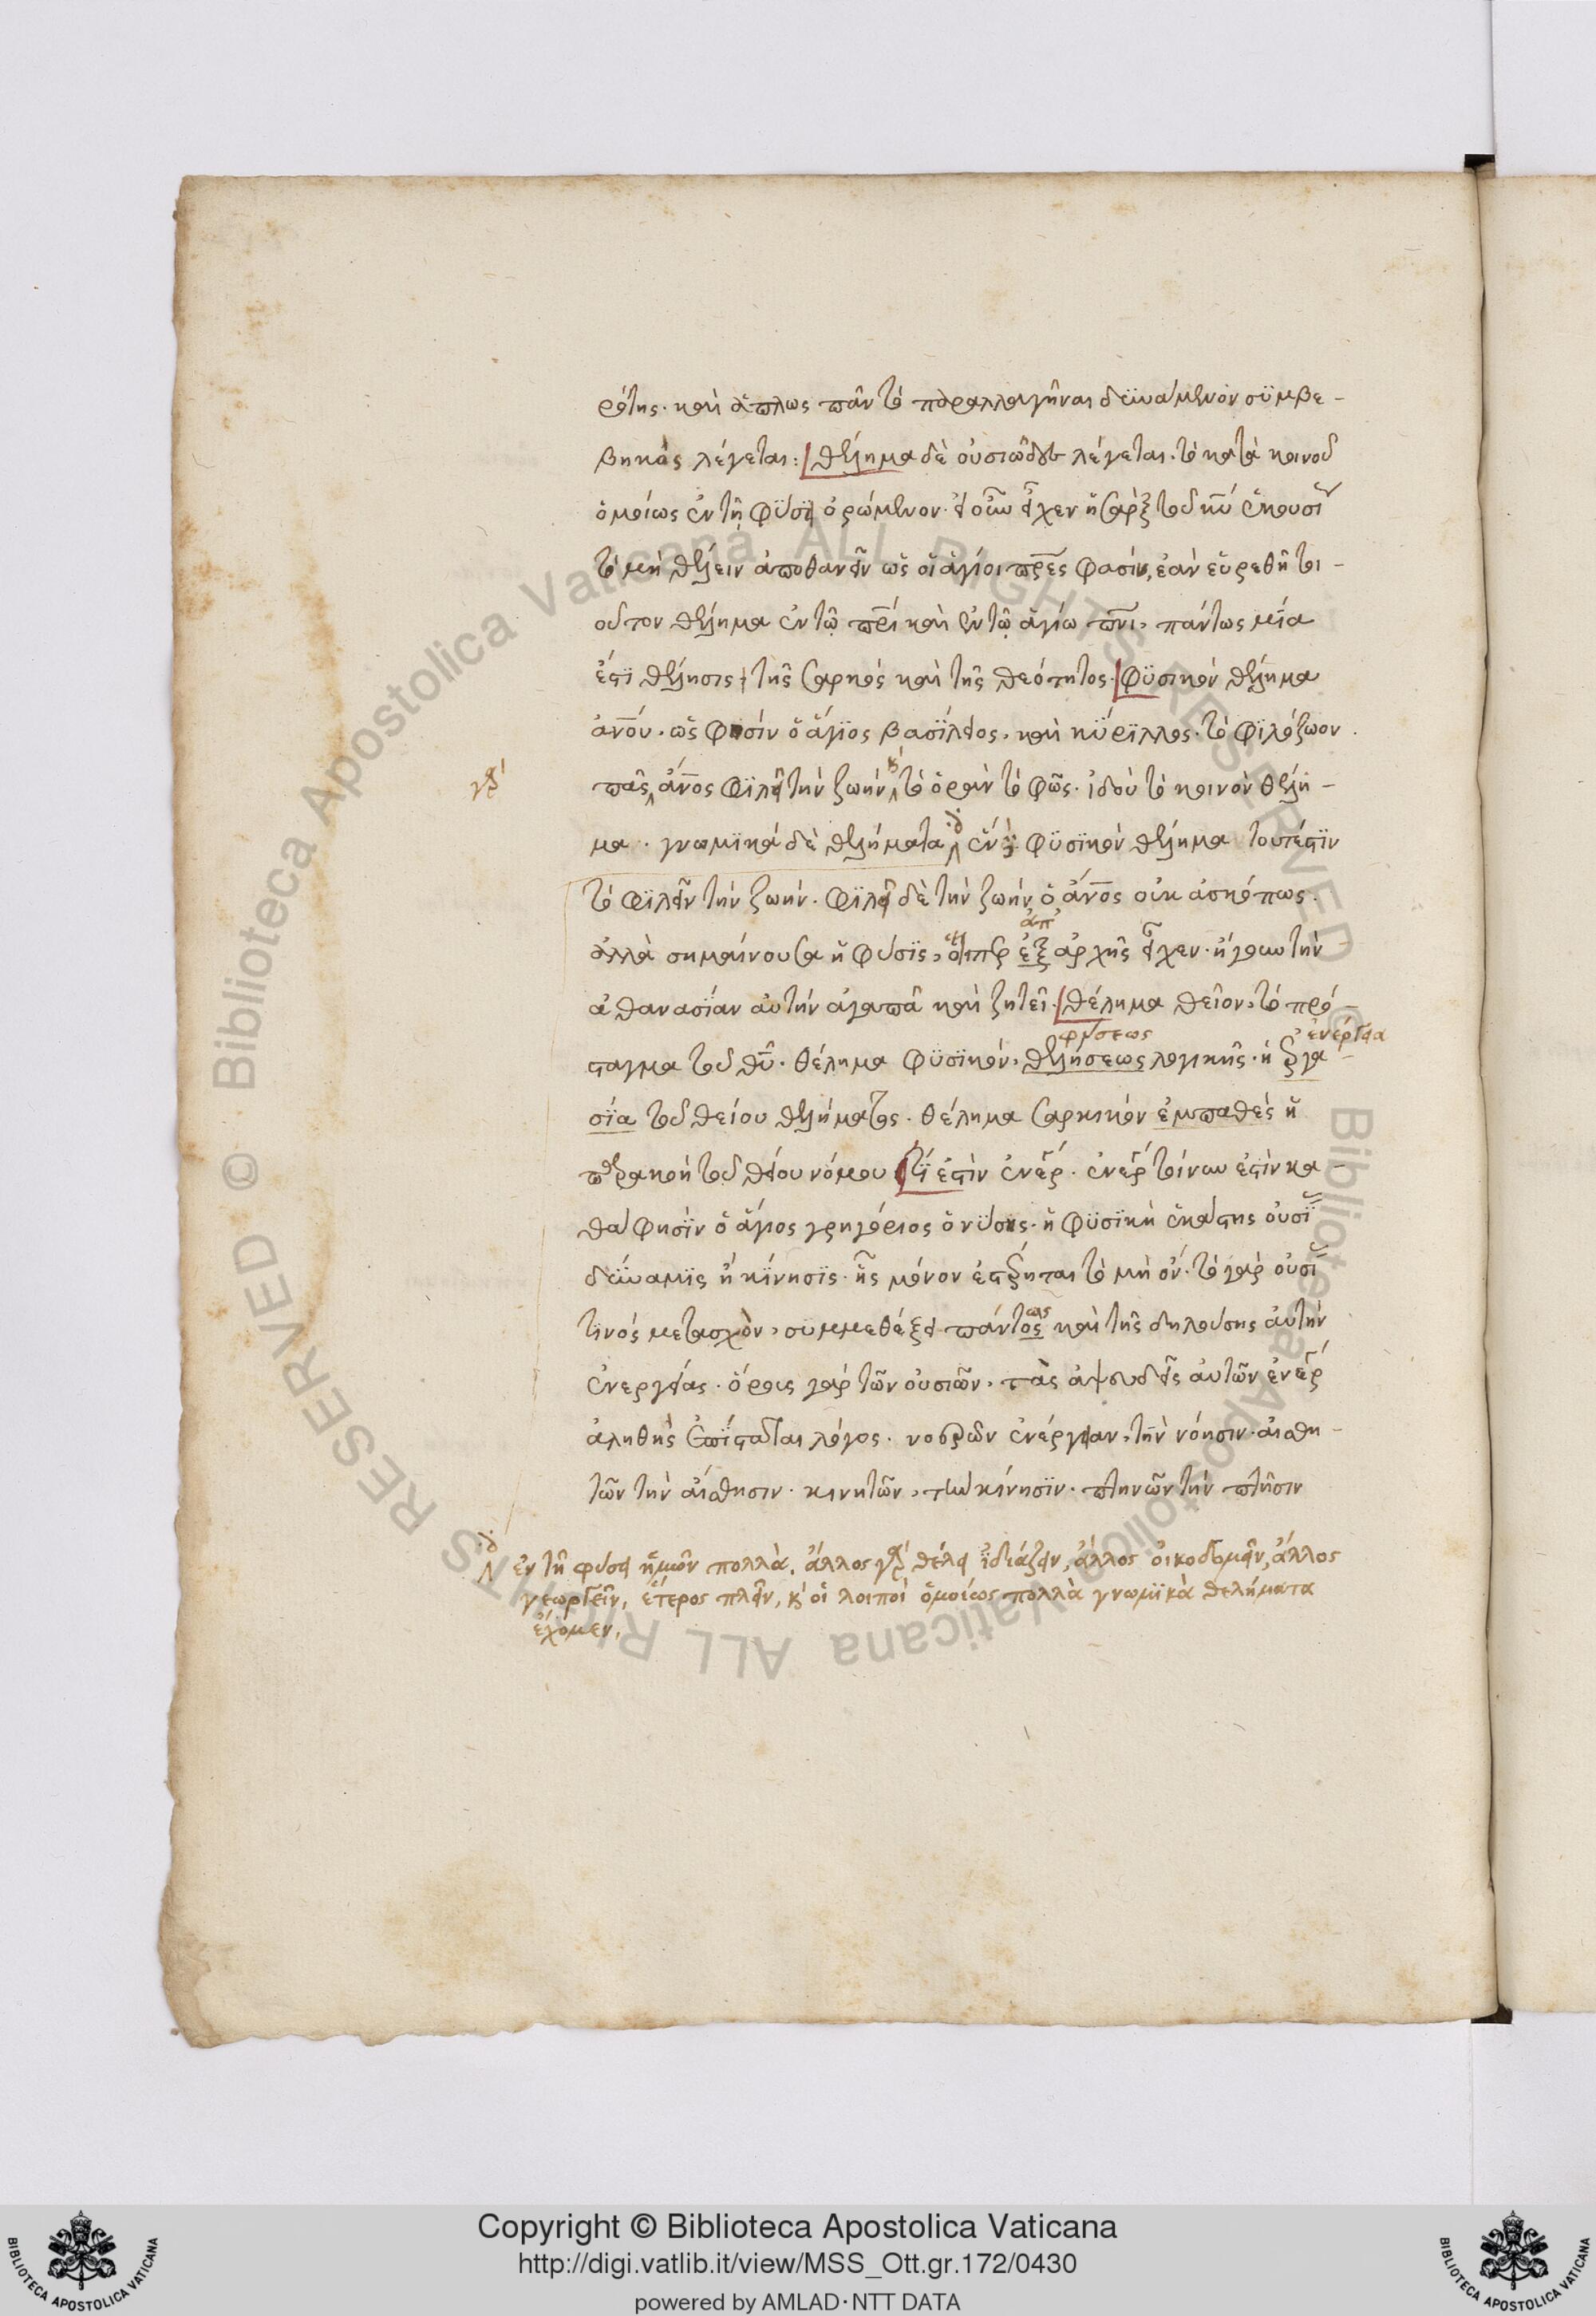 ρότης· καὶ ἁπλῶς πᾶν τὸ παραλλαγῆναι δυνάμενον συμβε-
βηκὸς λέγεται: θέλημα δὲ οὐσιῶδες λέγεται· τὸ κατὰ κοινοῦ
ὁμοίως ἐν τῇ φύσει ὁρώμενον· εἰ εἶχεν ἡ σὰρξ τοῦ κυ
τὸ μὴ θέλειν ἀποθανεῖν ὡς οἱ ἅγιοι πρες φασίν, ἐὰν εὑρεθῇ τι-
οῦτον θέλημα ἐν τῷ πρι καὶ ἐν τῷ ἁγίω πνι· πάντως μία
ἐστὶ θέλησις τῆς σαρκὸς καὶ τῆς θεότητος· φυσικὸν θέλημα
ἀνου· ὥς φησιν ὁ ἅγιος βασίλειος· καὶ κύριλλος· τὸ φιλόζωον
γὰρ
πᾶς ἄνος φιλεῖ τὴν ζωήν κ τὸ ὁρᾶν τὸ φῶς· ἰδοὺ τὸ κοινὸν θέλη-
μα· γνωμικὰ δὲ θελήματα φυσικὸν θέλημα τουτέστιν
τὸ φιλεῖν τὴν ζωήν· φιλεῖ δὲ τὴν ζωήν ὁ ἄνος οὐκ ἀσκόπως·
ἀπ
ἀλλὰ σημαίνουσα ἡ φύσις, ὅπερ ἐξ ἀρχῆς εἶχεν· ἤγουν τὴν
ἀθανασίαν αὐτὴν ἀγαπᾶ καὶ ζητεῖ· θέλημα θεῖον, τὸ πρό-
φύσεως ἐνέργεια
σταγμα τοῦ θυ· θέλημα φυσικόν, θελήσεως λογικῆς· ἡ ἐργα-
σία τοῦ θείου θελήματος· θέλημα σαρκικόν ἐμπαθὲς ἡ
παρακοὴ τοῦ θείου νόμου τί ἐστὶν ἐνέρ· ἐνέρ τοίνυν ἐστὶν κα-
θά φησιν ὁ ἅγιος γρηγόριος ὁ νύσης· ἡ φυσικὴ ἑκάστης οὐσί
δύναμις ἢ κίνησις· ἧς μόνον ἐστέρηται τὸ μὴ ὄν· τὸ γὰρ οὐσί
ως
τινὸς μετασχὸν, συμμεθέξει παντὸς καὶ τῆς δηλούσης αὐτὴν
ἐνεργείας· ὅρους γὰρ τῶν οὐσιῶν, τὰς ἀψευδεῖς αὐτῶν ἐνέρ
ἀληθὴς ἐπίσταται λόγος· νοερῶν ἐνέργειαν, τὴν νόησιν· αἰσθη-
τῶν τὴν αἴσθησιν· κινητῶν, τὴν κίνησιν· πτηνῶν τὴν πτῆσιν
ἐν τῇ φύσει ἡμῶν πολλὰ, ἄλλος γὰρ θέλει ἰδιάζειν, ἄλλος οἰκοδομεῖν, ἄλλος
γεωργεῖν, ἕτερος πλεῖν, κ οἱ λοιποὶ ὁμοίως πολλὰ γνωμικὰ θελήματα
ἔχομεν.
Copyright © Biblioteca Apostolica Vaticana
http://digi.vatlib.it/view/MSS_Ott.gr.172/0430
powered by AMLAD·NTT DATA